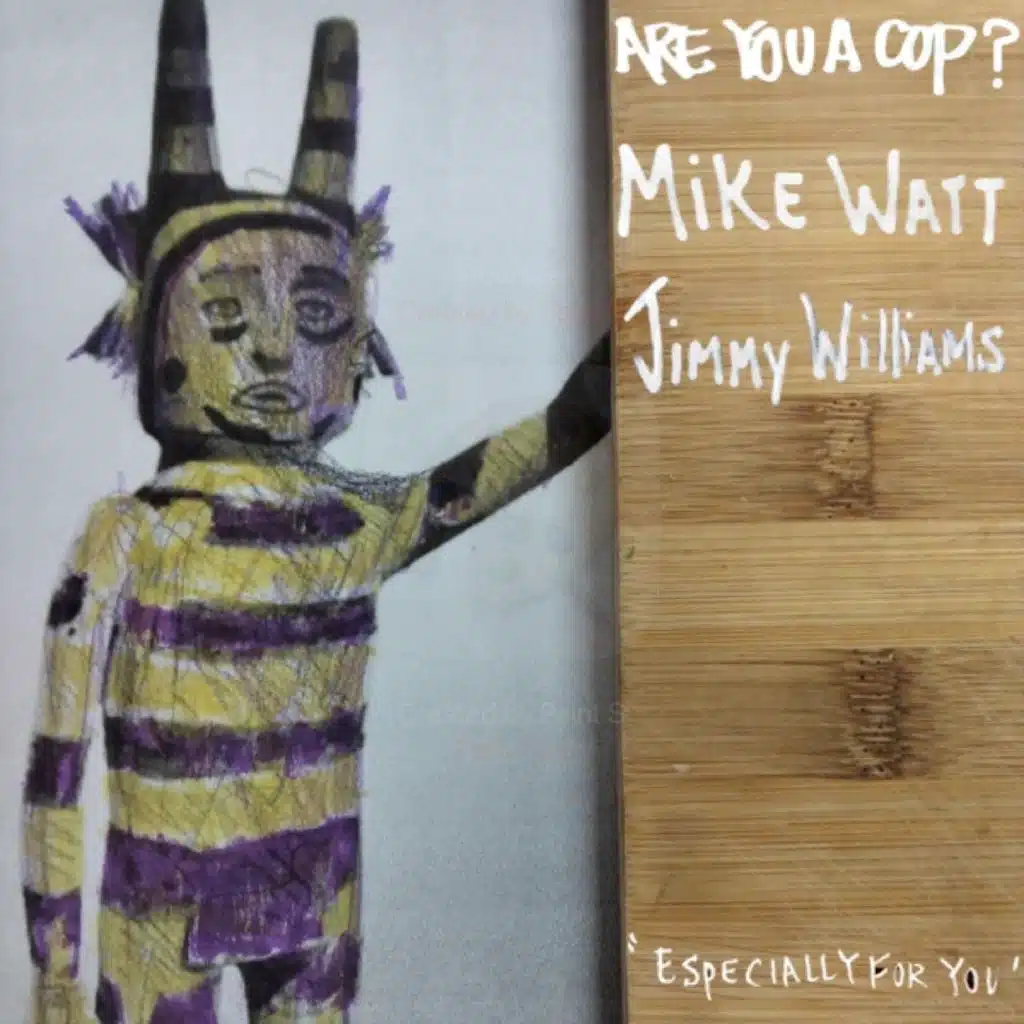 ARE YOU A COP?
MIKE WATT
JIMMY WILLIAMS
"ESPECIALLY FOR YOU'